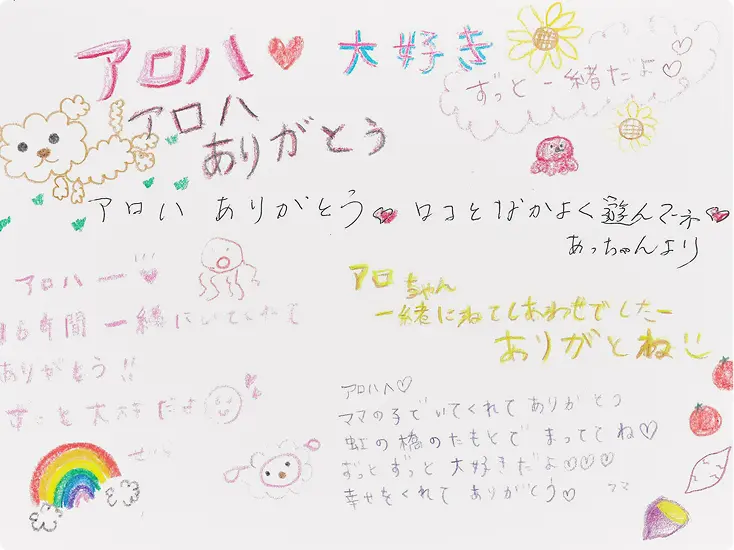 アロハ♥大好き
ずっと一緒だよ♡
アロハ
ありがとう
アロハ ありがとう♥ ロコとなかよく遊んでネ♥
あっちゃんより
アロハー♥
16年間一緒にいてくれて
ありがとう!!
ずっと大好きだよ
アロちゃん
一緒にねてしあわせでしたー
ありがとね
アロハへ♡
ママの子でいてくれてありがとう
虹の橋のたもとで まっててね♡
ずっとずっと大好きだよ♡♡♡
幸せをくれて ありがとう♡
ママ